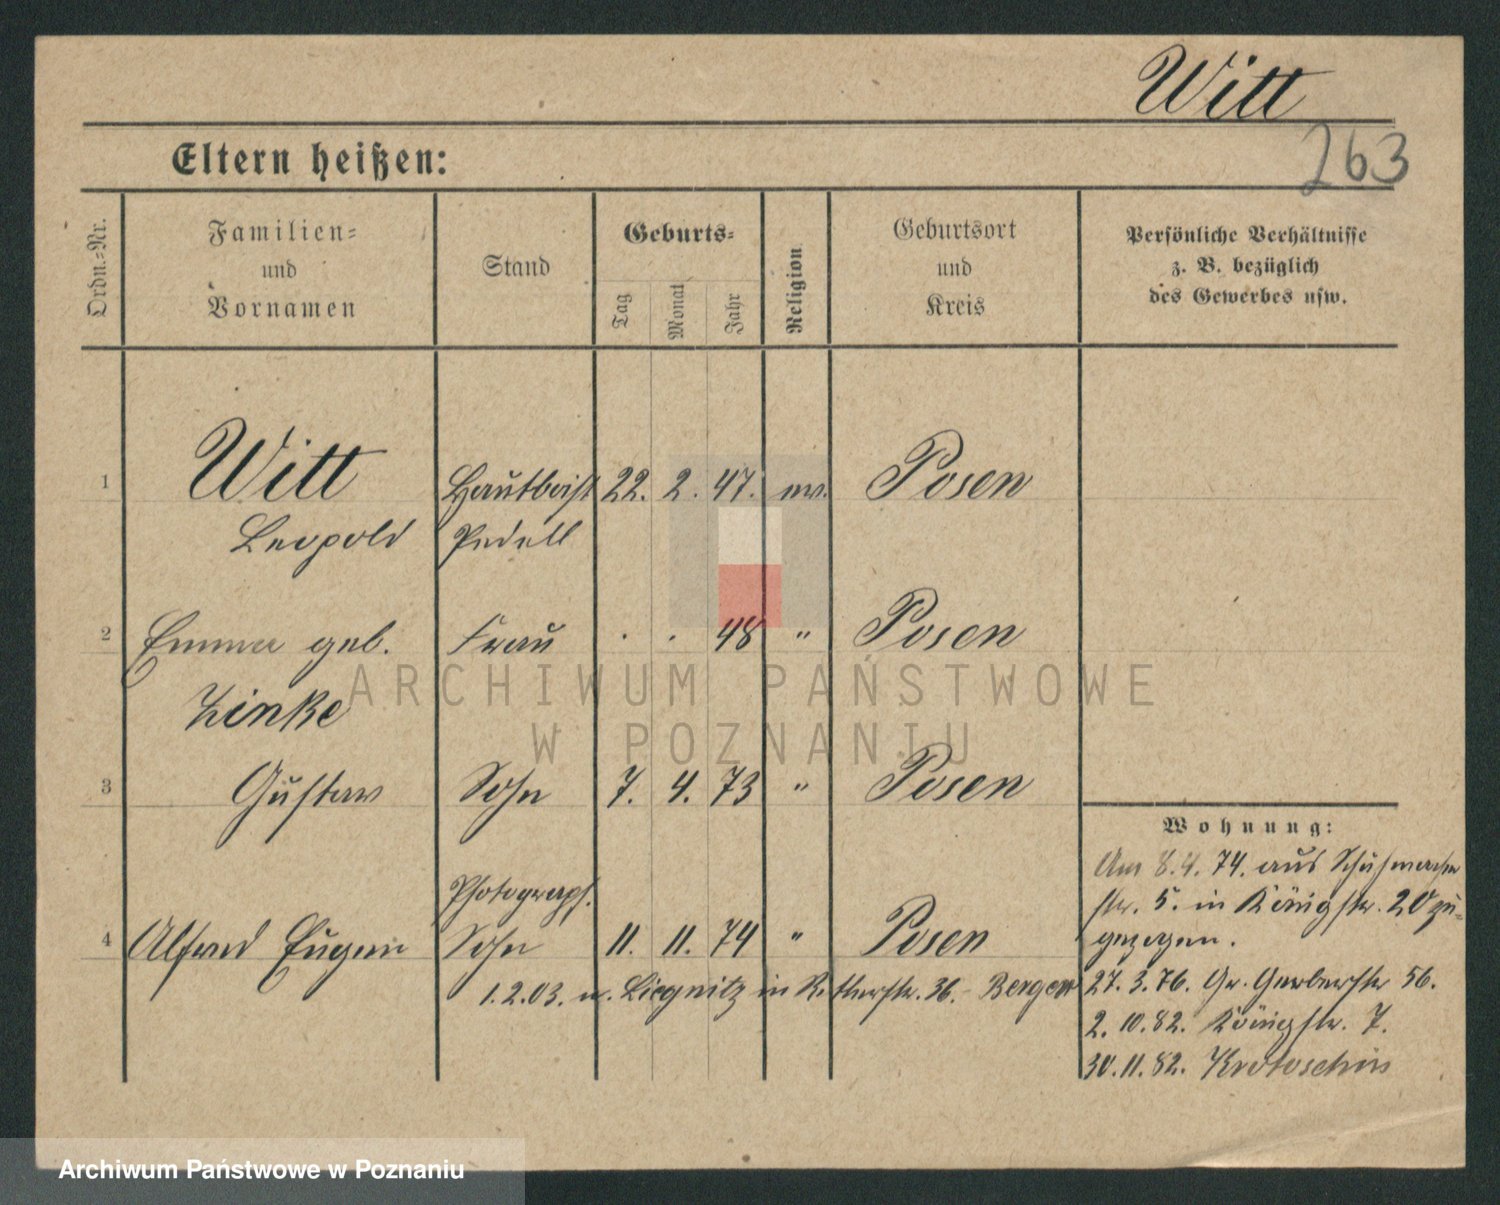 Witt
263
Eltern heißen:
Ordn.-Nr.
Familien- und Vornamen
Stand
Geburts-
Tag
Monat
Jahr
Religion
Geburtsort und Kreis
Persönliche Verhältnisse
z. B. bezüglich
des Gewerbes usw.
1 Witt Hautboist 22. 2. 47. ev. Posen
Leopold Pedell
2 Emma geb. Frau . . 48 " Posen
Linke
3 Gustav Sohn 7. 4. 73 " Posen
Photograph.
4 Alfred Eugen Sohn 11. 11. 74 " Posen
1.2.03. n. Liegnitz in Ritterstr. 36. - Berger
Wohnung:
Am 8.4.74. aus Schuhmacher
str. 5. in Königstr. 20 zu-
gezogen.
27.3.76. Gr. Gerberstr 56.
2.10.82. Königstr. 7.
30.11.82. Krotoschin
ARCHIWUM PAŃSTWOWE
W POZNANIU
Archiwum Państwowe w Poznaniu